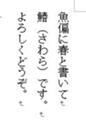 魚偏に春と書いて、
鰆（さわら）です。
よろしくどうぞ。